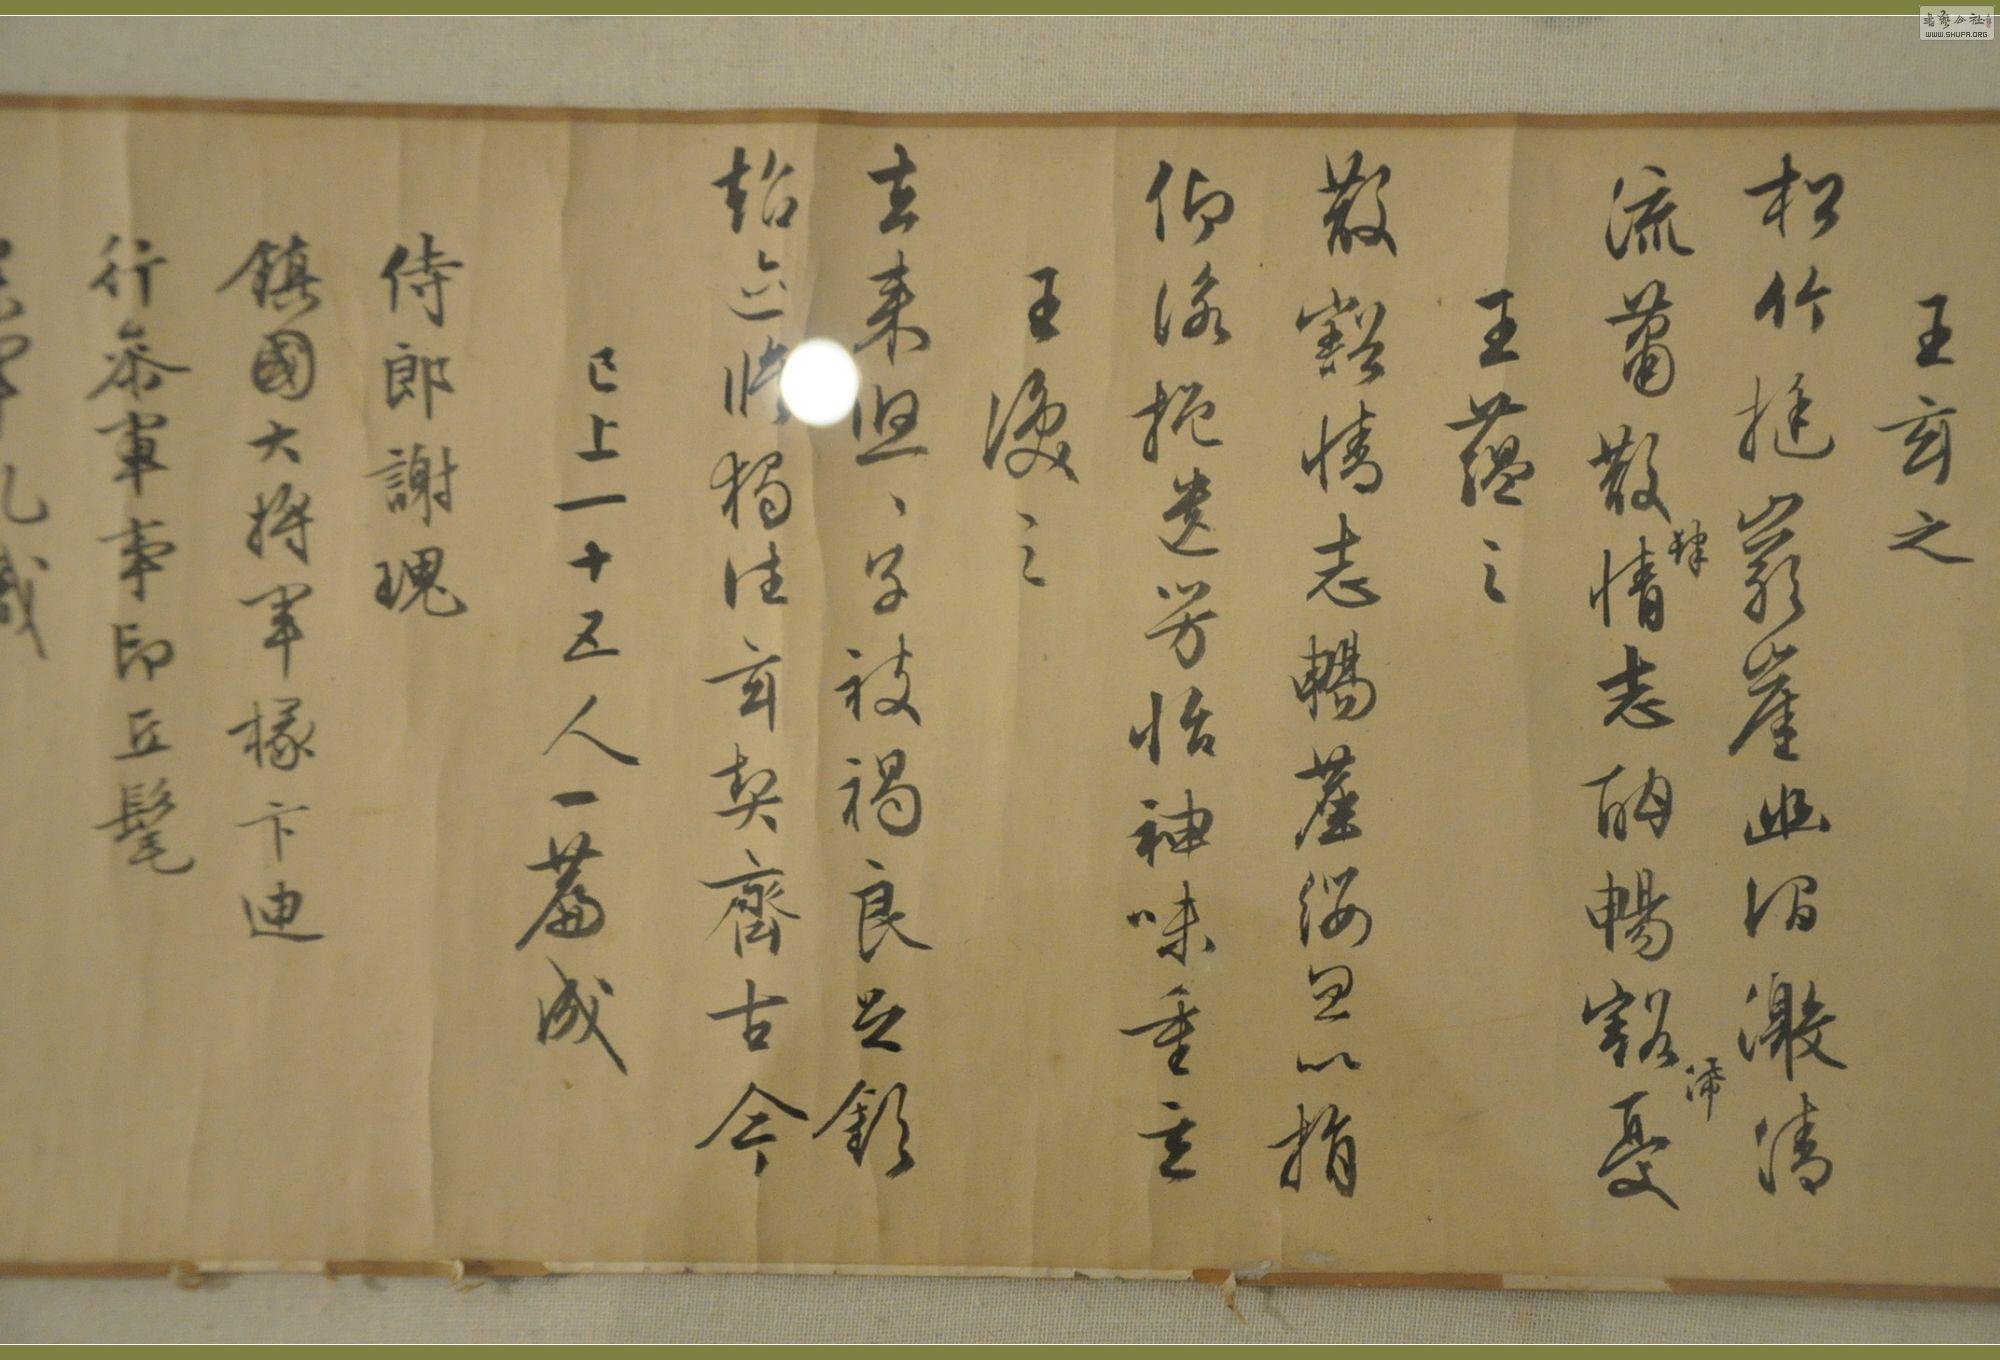 王玄之
松竹挺巖崖幽澗激清
流蕭散情志酣暢豁憂
肆
滯
王蘊之
散豁情志暢塵纓忽以捐
仰詠挹遺芳怡神味重玄
王渙之
去來悠、子被褐良足欽
超迹脩獨往玄契齊古今
已上一十五人一篇成
侍郎謝瑰
鎮國大將軍掾卞迪
行叅軍事印丘髦
書藝公社
WWW.SHUFA.ORG